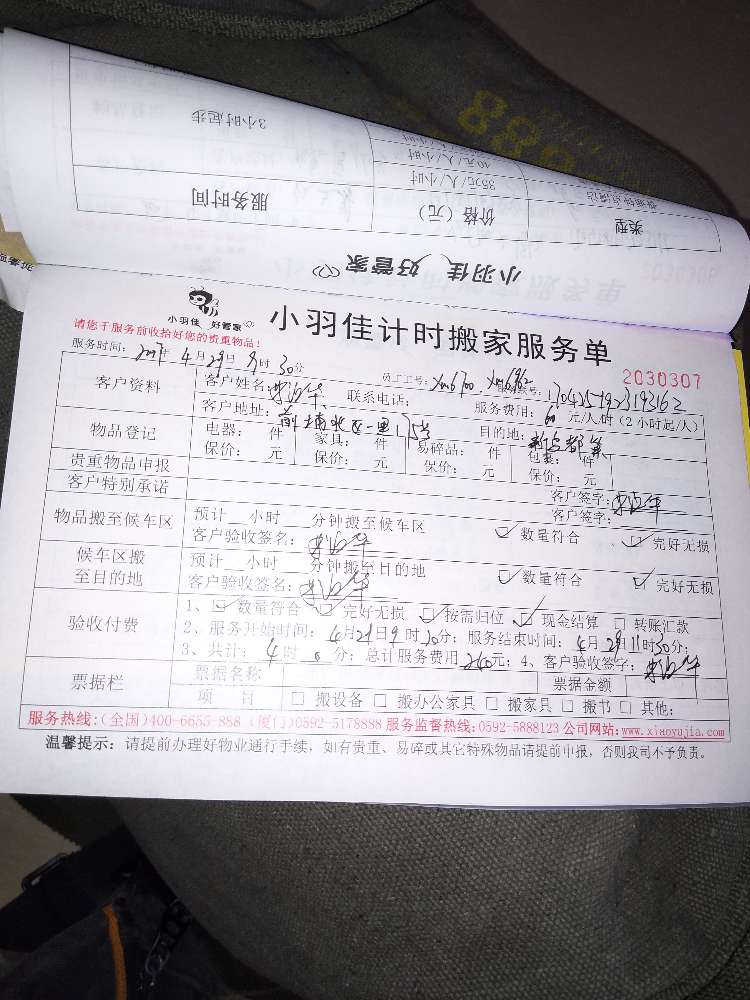 3小时起步
40元/人/小时
35元/人/小时
服务时间
价格（元）
类型
小羽佳 好管家
小羽佳 好管家
小羽佳计时搬家服务单
请您于服务前收拾好您的贵重物品！
2030307
服务时间：2017年4月29日9时30分
员工工号：Xm6700 Xm6962
1704251923193162
客户资料
客户姓名：
联系电话：
服务费用：60元/人/时（2小时起/人）
客户地址：前埔北区一里175号
目的地：
物品登记
电器： 件 家具： 件 易碎品： 件 包装： 件
保价： 元 保价： 元 保价： 元 保价： 元
贵重物品申报 客户签字：
客户特别承诺 客户签字：
物品搬至候车区
预计__小时__分钟搬至候车区
客户验收签名：
数量符合 完好无损
候车区搬
至目的地
预计__小时__分钟搬至目的地
客户验收签名：
数量符合 完好无损
验收付费
1、 数量符合 完好无损 按需归位 现金结算 转账汇款
2、服务开始时间：4月29日9时30分；服务结束时间：4月29日11时30分；
3、共计：4时0分；总计服务费用240元；4、客户验收签字：
票据栏
票据名称
票据金额
项 目 搬设备 搬办公家具 搬家具 搬书 其他：
服务热线：(全国)400-6655-888 (厦门)0592-5178888 服务监督热线：0592-5888123 公司网站：www.xiaoyujia.com
温馨提示：请提前办理好物业通行手续，如有贵重、易碎或其它特殊物品请提前申报，否则我司不予负责。